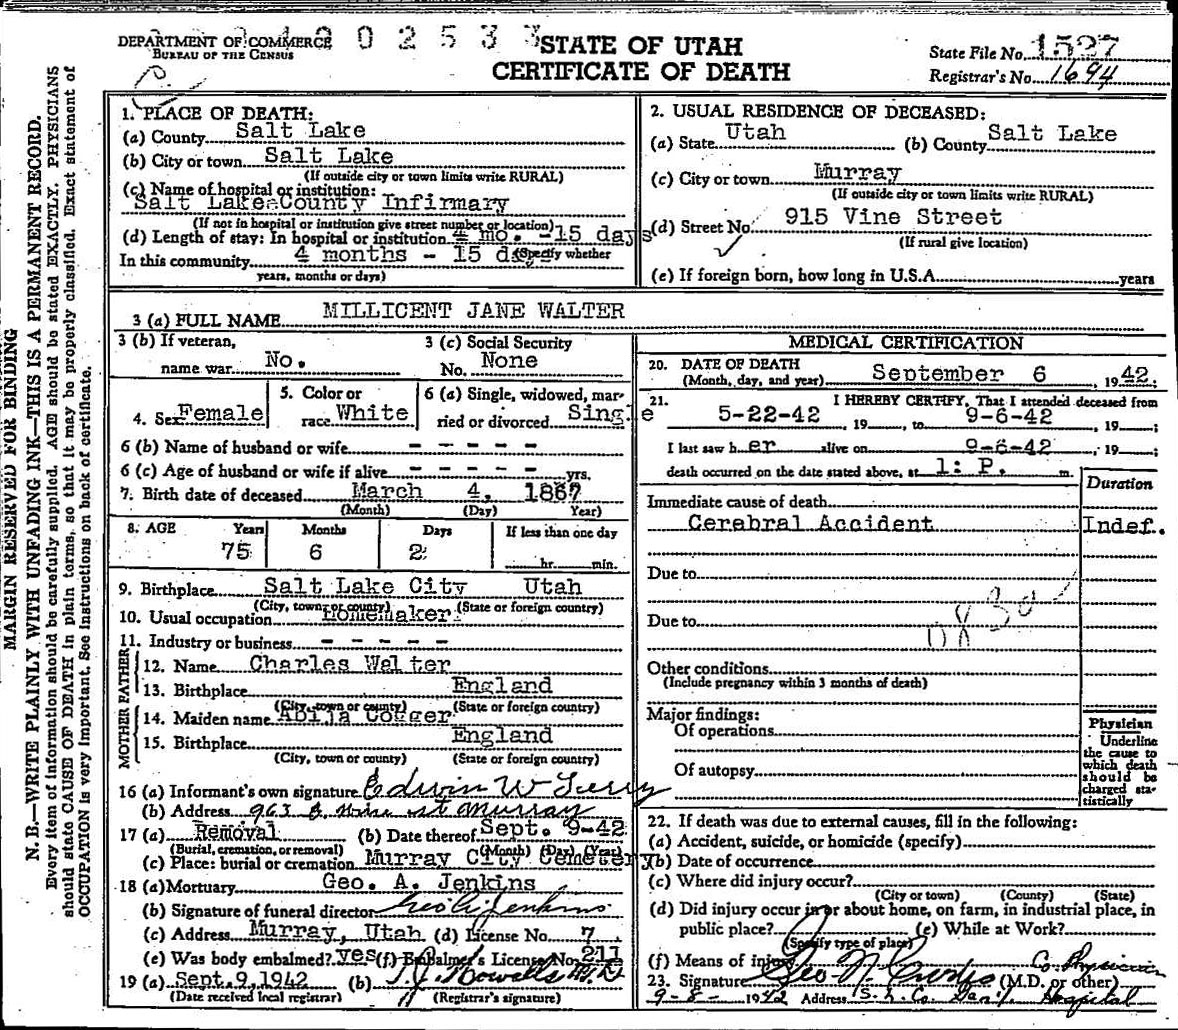 MARGIN RESERVED FOR BINDING
N. B.—WRITE PLAINLY WITH UNFADING INK—THIS IS A PERMANENT RECORD.
Every item of information should be carefully supplied. AGE should be stated EXACTLY. PHYSICIANS
should state CAUSE OF DEATH in plain terms, so that it may be properly classified. Exact statement of
OCCUPATION is very important. See instructions on back of certificate.
DEPARTMENT OF COMMERCE
BUREAU OF THE CENSUS
0 2 5 3 3
STATE OF UTAH
CERTIFICATE OF DEATH
State File No. 1527
Registrar's No. 1694
1. PLACE OF DEATH:
(a) County Salt Lake
(b) City or town Salt Lake
(If outside city or town limits write RURAL)
(c) Name of hospital or institution:
Salt Lake County Infirmary
(If not in hospital or institution give street number or location)
(d) Length of stay: In hospital or institution 4 mo. - 15 days
(Specify whether
In this community 4 months - 15 d
years, months or days)
2. USUAL RESIDENCE OF DECEASED:
(a) State Utah (b) County Salt Lake
(c) City or town Murray
(If outside city or town limits write RURAL)
(d) Street No. 915 Vine Street
(If rural give location)
(e) If foreign born, how long in U.S.A. years
3 (a) FULL NAME MILLICENT JANE WALTER
3 (b) If veteran, name war No.
3 (c) Social Security No. None
4. Sex Female
5. Color or race White
6 (a) Single, widowed, married or divorced Single
6 (b) Name of husband or wife - - - - -
6 (c) Age of husband or wife if alive - - - - - yrs.
7. Birth date of deceased March 4, 1867
(Month) (Day) Year)
8. AGE Years Months Days If less than one day
75 6 2 hr. min.
9. Birthplace Salt Lake City Utah
(City, town or county) (State or foreign country)
10. Usual occupation Homemaker
11. Industry or business - - - - -
FATHER
12. Name Charles Walter
13. Birthplace England
(City, town or county) (State or foreign country)
MOTHER
14. Maiden name Abija Cogger
15. Birthplace England
(City, town or county) (State or foreign country)
16 (a) Informant's own signature Edwin W
(b) Address 963 Vine st Murray
17 (a) Removal (b) Date thereof Sept. 9-42
(Burial, cremation, or removal) (Month) (Day) (Year)
(c) Place: burial or cremation Murray City Cemetery
18 (a) Mortuary Geo. A. Jenkins
(b) Signature of funeral director Geo A Jenkins
(c) Address Murray, Utah (d) License No. 7
(e) Was body embalmed? yes (f) Embalmer's License No. 211
19 (a) Sept. 9, 1942 (b)
(Date received local registrar) (Registrar's signature)
MEDICAL CERTIFICATION
20. DATE OF DEATH
(Month, day, and year) September 6, 1942;
21. I HEREBY CERTIFY, That I attended deceased from
5-22-42, 19 , to 9-6-42, 19 ;
I last saw h er alive on 9-6-42, 19 ;
death occurred on the date stated above, at 1: P. m.
Duration
Immediate cause of death
Cerebral Accident Indef.
Due to
Due to
Other conditions
(Include pregnancy within 3 months of death)
Major findings:
Of operations
Of autopsy
Physician
Underline
the cause to
which death
should be
charged sta-
tistically
22. If death was due to external causes, fill in the following:
(a) Accident, suicide, or homicide (specify)
(b) Date of occurrence
(c) Where did injury occur?
(City or town) (County) (State)
(d) Did injury occur in or about home, on farm, in industrial place, in
public place? (e) While at Work?
(Specify type of place)
(f) Means of injury
Co. Physician
23. Signature Geo N (M.D. or other)
9-8-1942 Address S. L. Co. Gen'l Hospital